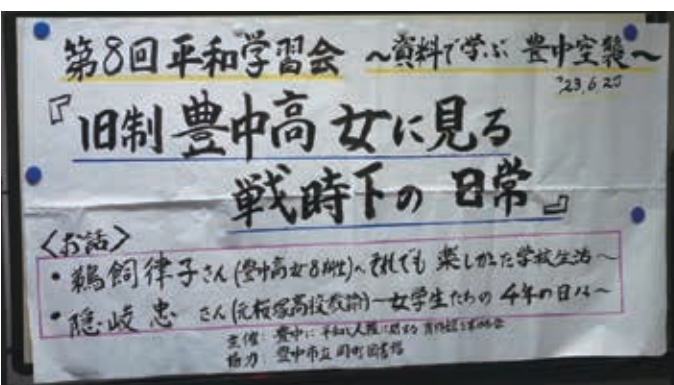 第8回平和学習会 ～資料で学ぶ 豊中空襲～
'23.6.25
『旧制豊中高女に見る
戦時下の日常』
<お話>
・鵜飼律子さん(豊中高女8期生)～それでも楽しかった学校生活～
・隠岐 忠 さん(元桜塚高校教諭)―女学生たちの4年の日々～
主催 豊中に平和と人権に関する
協力 豊中市立岡町図書館